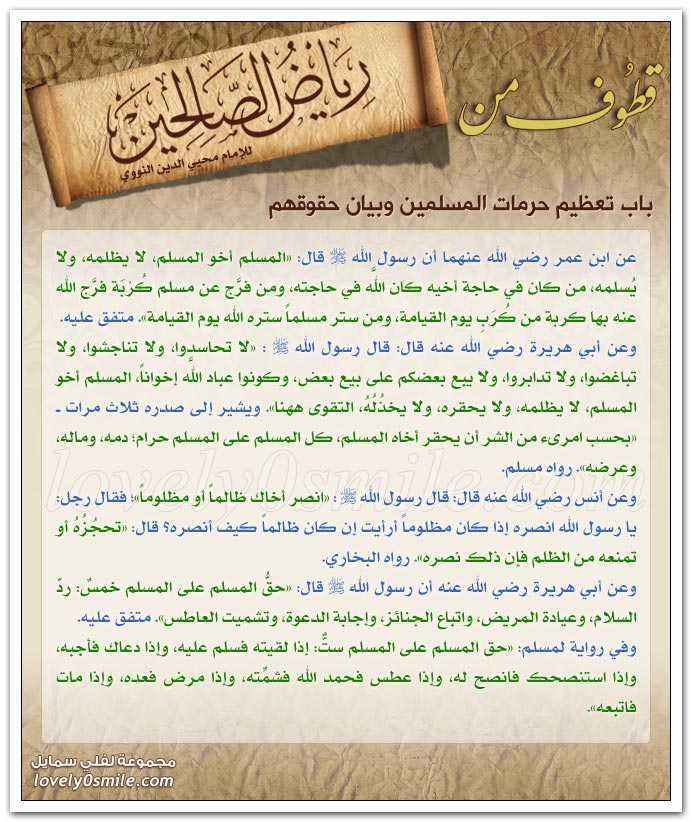 قطوف من
رياض الصالحين
للإمام محيي الدين النووي
باب تعظيم حرمات المسلمين وبيان حقوقهم
عن ابن عمر رضي الله عنهما أن رسول الله ﷺ قال: «المسلم أخو المسلم، لا يظلمه، ولا
يُسلمه، من كان في حاجة أخيه كان اللَّه في حاجته، ومن فرَّج عن مسلم كُرْبَة فرَّج الله
عنه بها كربة من كُرَبِ يوم القيامة، ومن ستر مسلماً ستره الله يوم القيامة». متفق عليه.
وعن أبي هريرة رضي الله عنه قال: قال رسول الله ﷺ : «لا تحاسدوا، ولا تناجشوا، ولا
تباغضوا، ولا تدابروا، ولا يبع بعضكم على بيع بعض، وكونوا عباد الله إخواناً، المسلم أخو
المسلم، لا يظلمه، ولا يحقره، ولا يخذُلُهُ، التقوى ههنا». ويشير إلى صدره ثلاث مرات ـ
«بحسب امرىء من الشر أن يحقر أخاه المسلم، كل المسلم على المسلم حرام؛ دمه، وماله،
وعرضه». رواه مسلم.
وعن أنس رضي الله عنه قال: قال رسول الله ﷺ : «انصر أخاك ظالماً أو مظلوماً»؛ فقال رجل:
يا رسول الله انصره إذا كان مظلوماً أرأيت إن كان ظالماً كيف أنصره؟ قال: «تحجُزُهُ أو
تمنعه من الظلم فإن ذلك نصره». رواه البخاري.
وعن أبي هريرة رضي الله عنه أن رسول الله ﷺ قال: «حقُّ المسلم على المسلم خمسٌ: ردّ
السلام، وعيادة المريض، واتباع الجنائز، وإجابة الدعوة، وتشميت العاطس». متفق عليه.
وفي رواية لمسلم: «حق المسلم على المسلم ستٌّ: إذا لقيته فسلم عليه، وإذا دعاك فأجبه،
وإذا استنصحك فانصح له، وإذا عطس فحمد الله فشمِّته، وإذا مرض فعده، وإذا مات
فاتبعه».
lovely0smile.com
مجموعة لفلي سمايل
lovely0smile.com